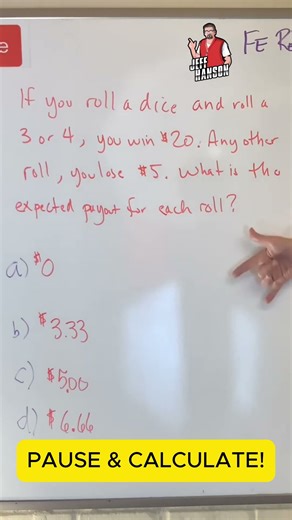 e
JEFF
HANSON
FE Re
If you roll a dice and roll a
3 or 4, you win $20. Any other
roll, you lose $5. What is the
expected payout for each roll?
a) $0
b) $3.33
c) $5.00
d) $6.66
PAUSE & CALCULATE!